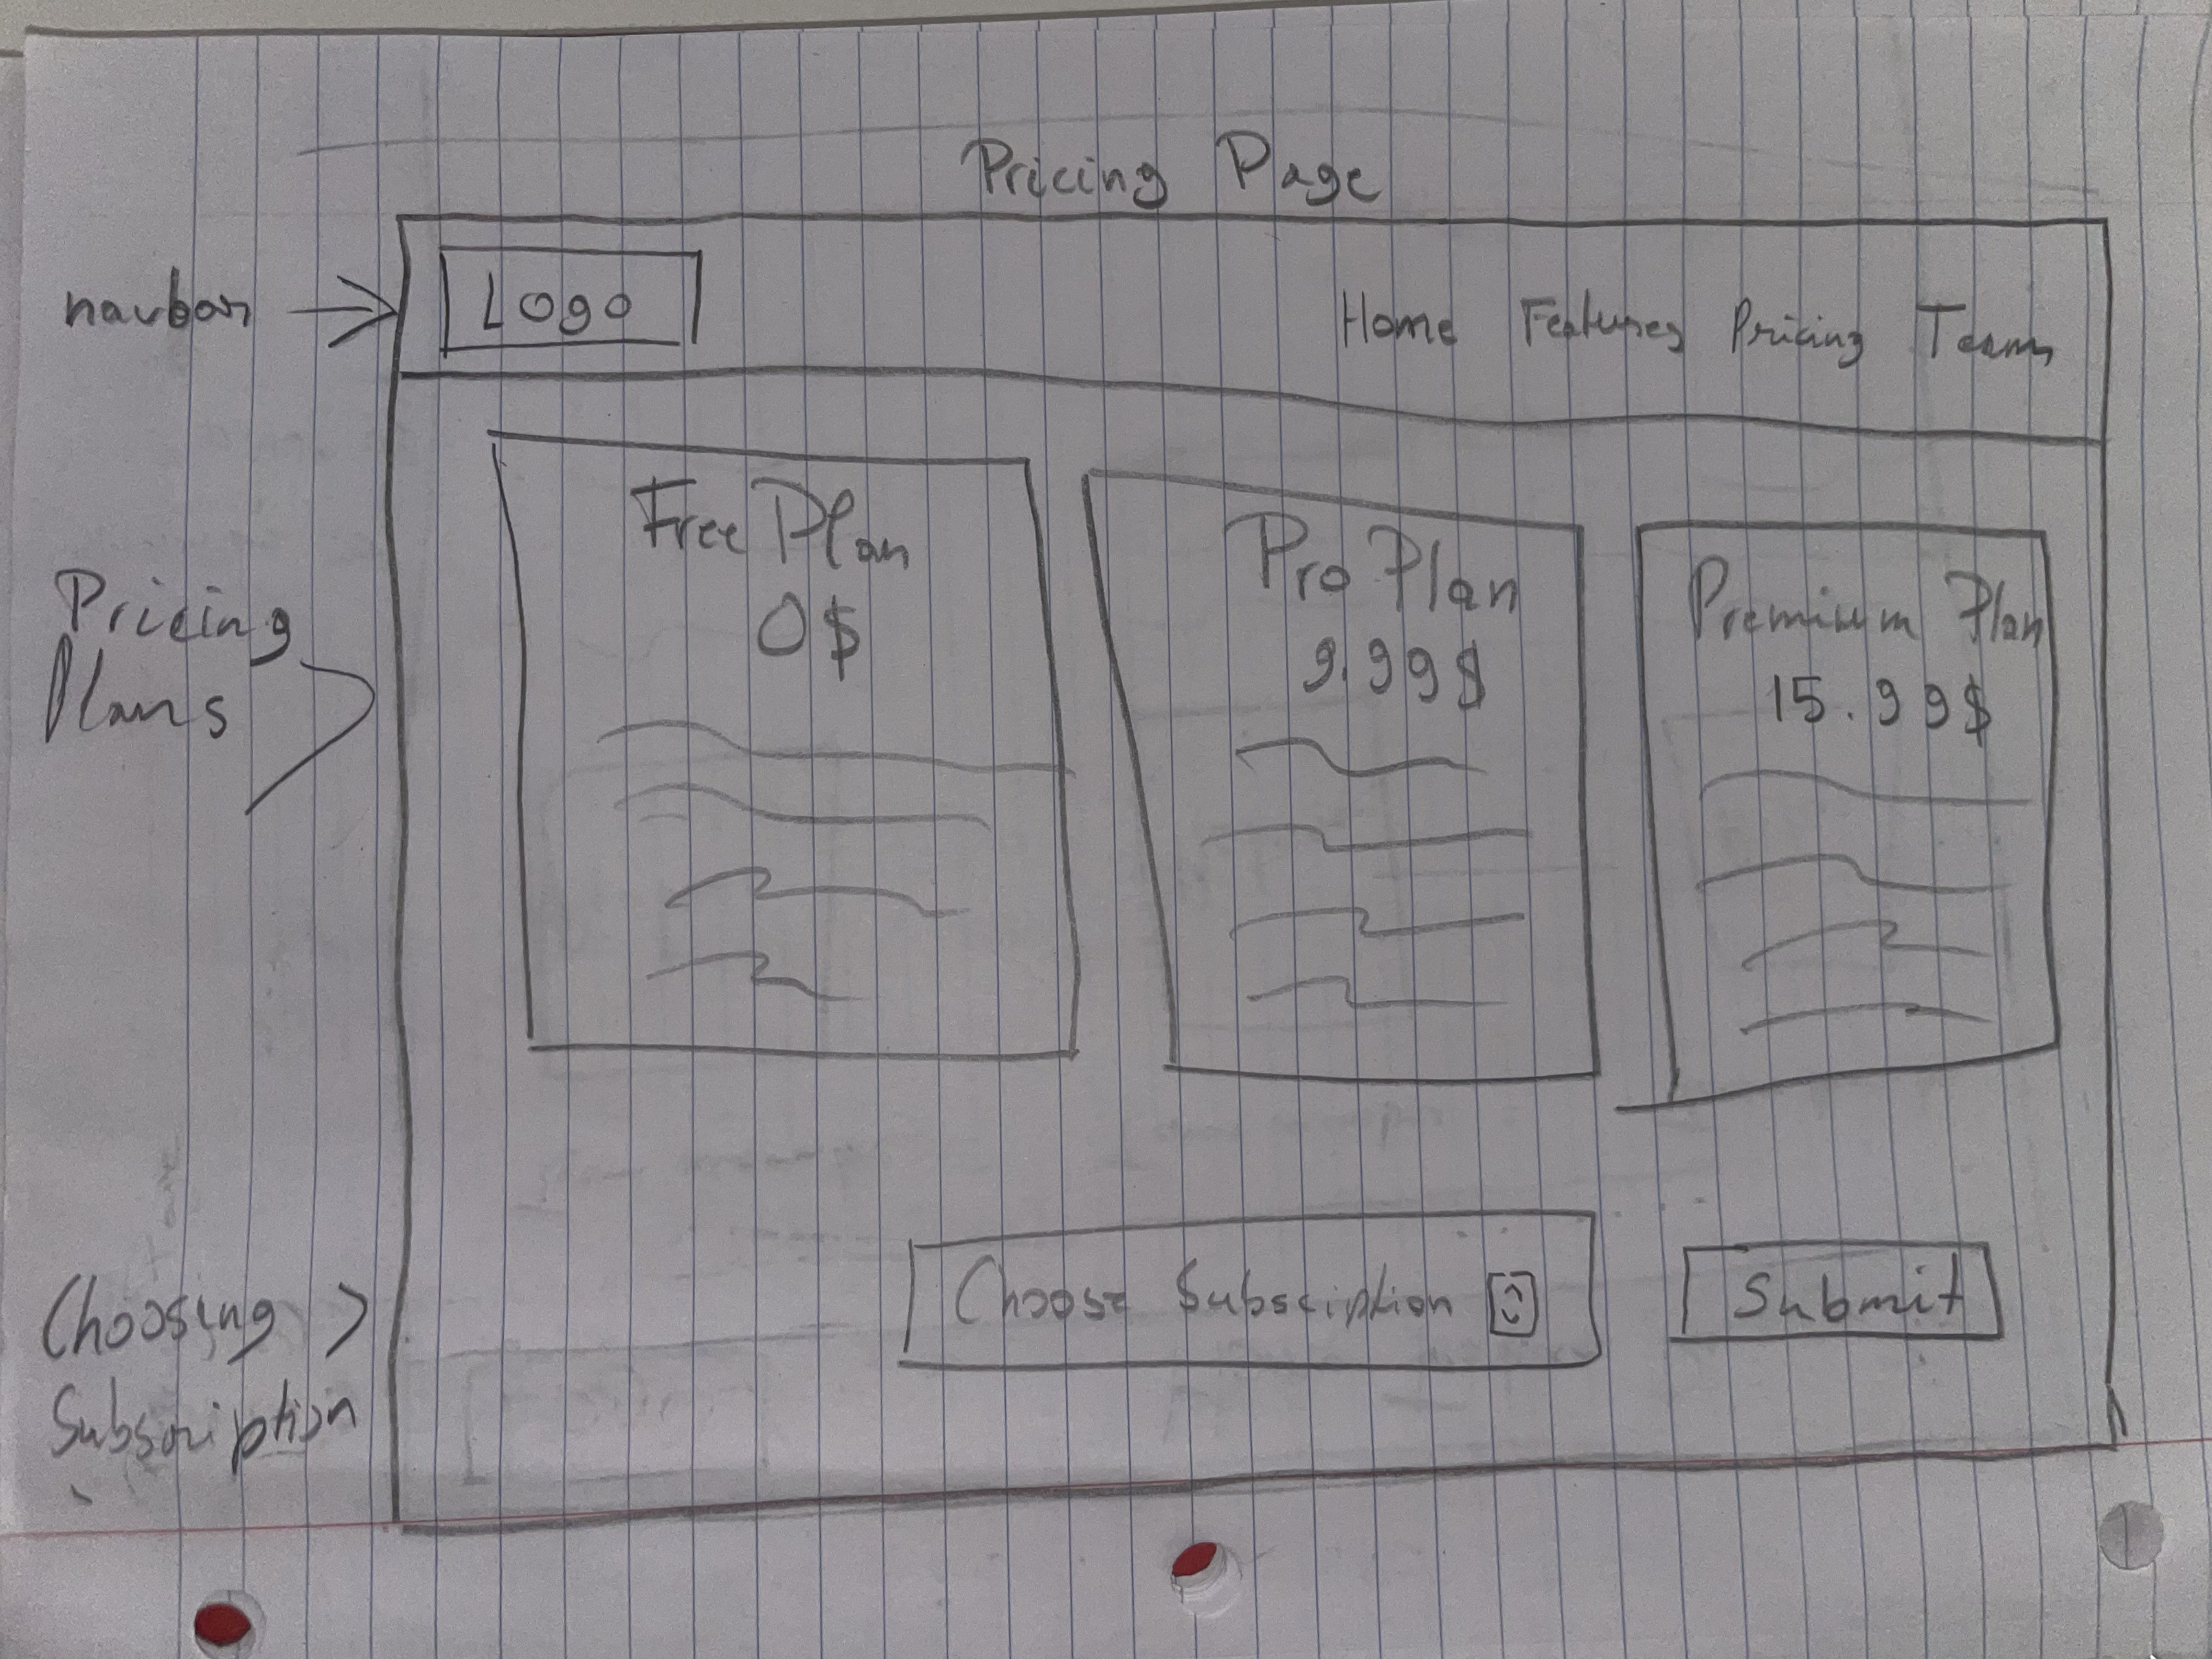 Pricing Page
navbar
Logo
Home Features Pricing Team
Pricing
Plans
Free Plan
0$
Pro Plan
9.99$
Premium Plan
15.99$
Choosing
Subsription
Choose Subscription
Submit